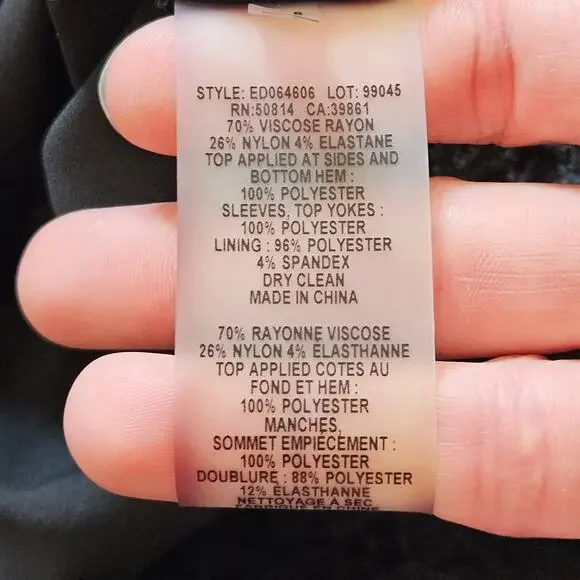 STYLE: ED064606 LOT: 99045
RN:50814 CA:39861
70% VISCOSE RAYON
26% NYLON 4% ELASTANE
TOP APPLIED AT SIDES AND
BOTTOM HEM :
100% POLYESTER
SLEEVES, TOP YOKES :
100% POLYESTER
LINING : 96% POLYESTER
4% SPANDEX
DRY CLEAN
MADE IN CHINA
70% RAYONNE VISCOSE
26% NYLON 4% ÉLASTHANNE
TOP APPLIED COTES AU
FOND ET HEM :
100% POLYESTER
MANCHES,
SOMMET EMPIÉCEMENT :
100% POLYESTER
DOUBLURE : 88% POLYESTER
12% ÉLASTHANNE
NETTOYAGE À SEC